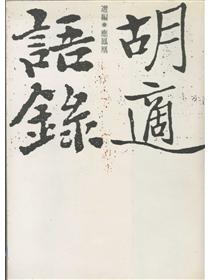 胡適
語錄
選編●應鳳凰